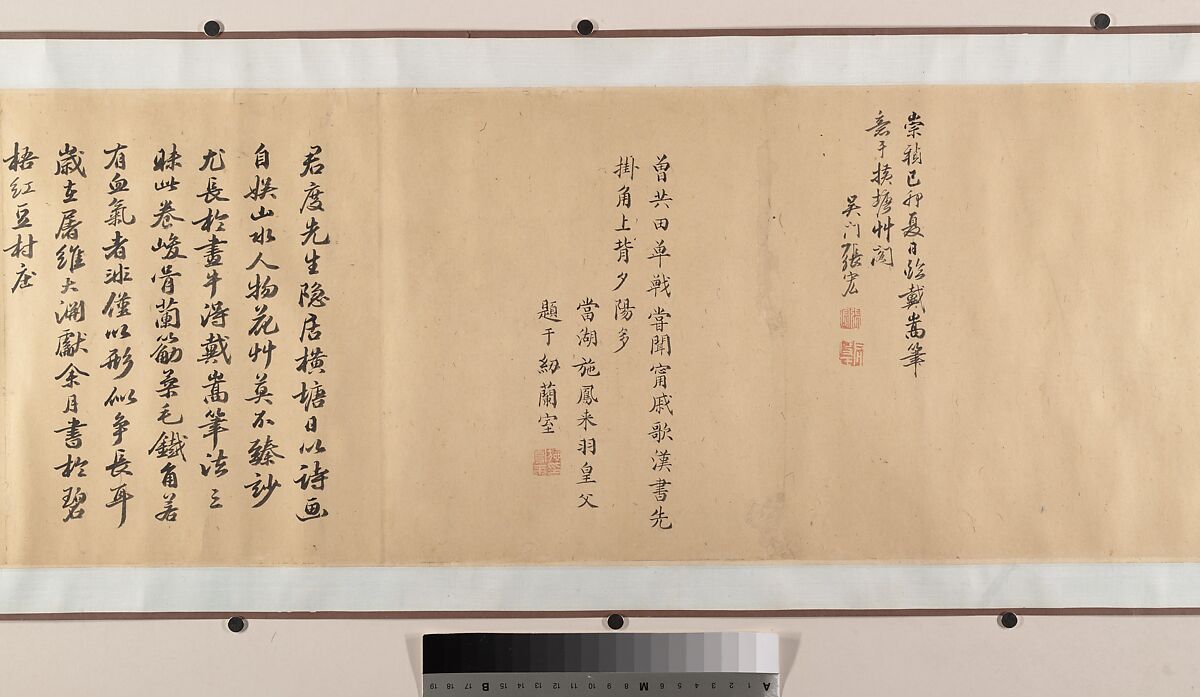 崇禎己卯夏日績戴嵩筆
意于橫塘艸閣
吳門張宏
曾共田單戰嘗聞甯戚歌漢書先
掛角上背夕陽多
當湖施鳳来羽皇父
題于紉蘭室
君度先生隐居橫塘日以詩画
自娛山水人物花艸莫不臻玅
尤長於畫牛淂戴嵩筆法三
昧此卷峻骨蘭筋柔毛鐵角若
有血氣者非僅以形似争長耳
歲在屠維大渊獻余月書於碧
梧紅豆村庄
A 1 2 3 4 5 6 M 8 9 10 11 12 13 14 15 B 17 18 19